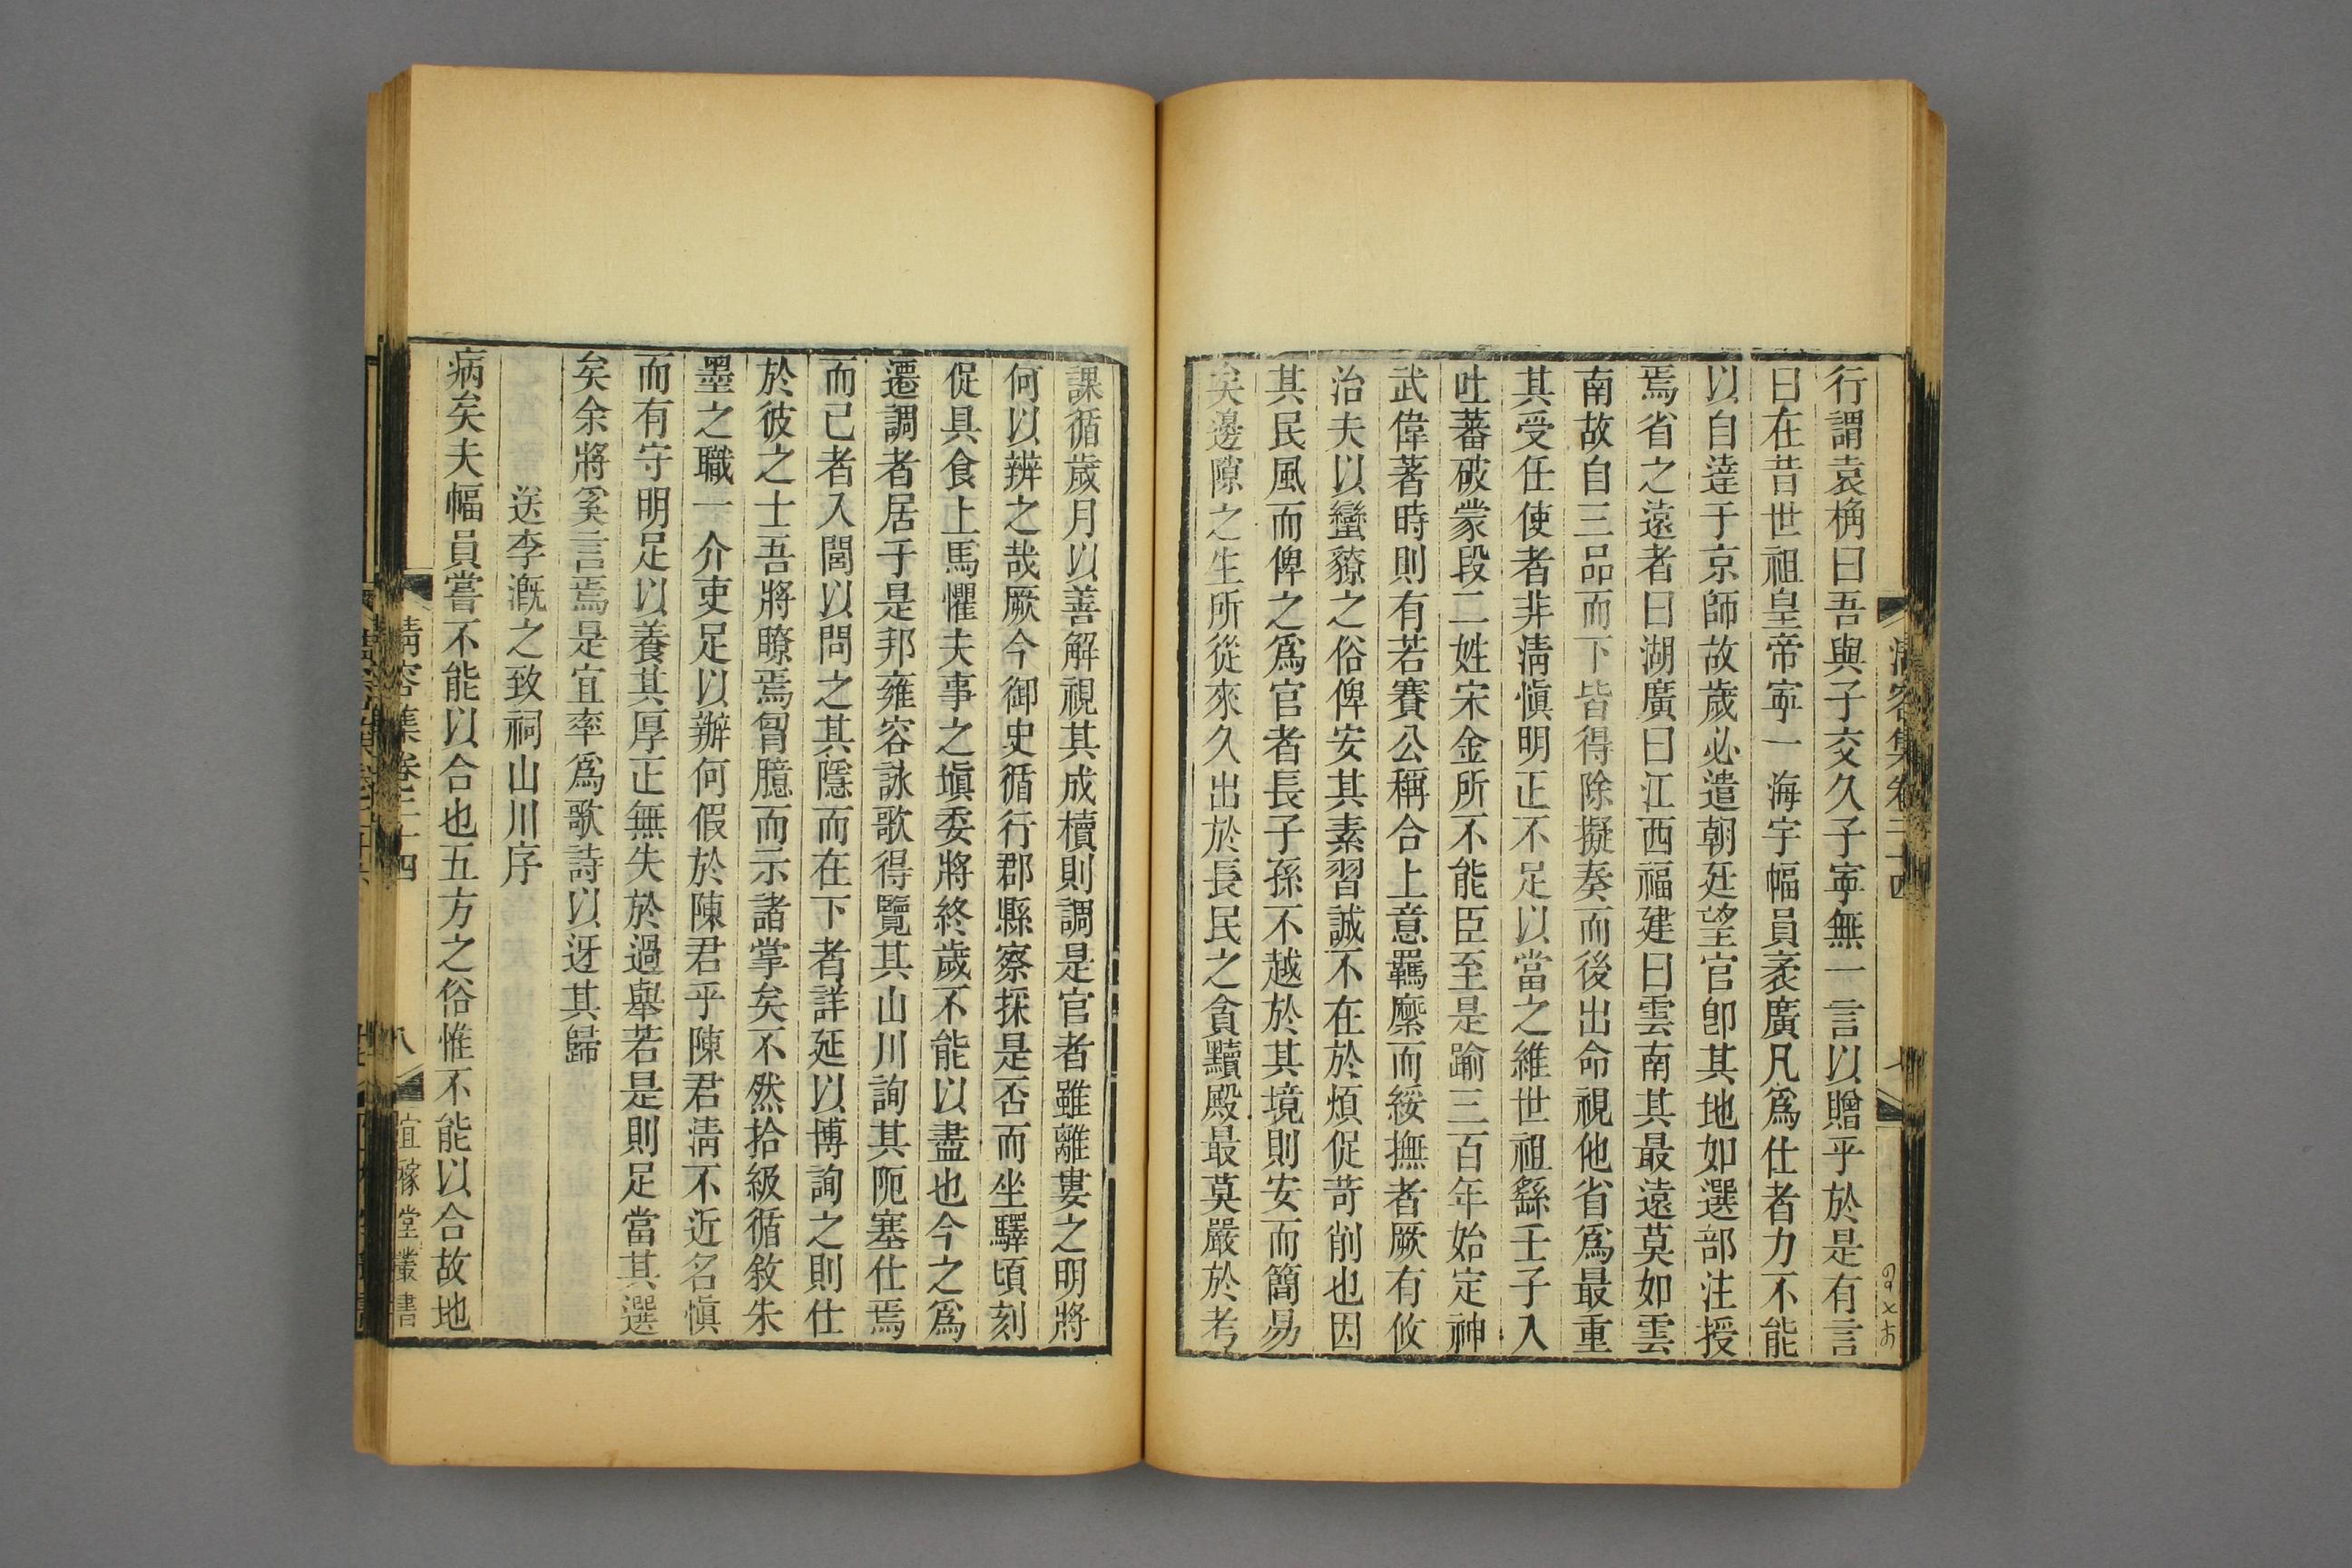 清容集卷二十四
行謂袁桷曰吾與子交久子寍無一言以贈乎於是有言
曰在昔世祖皇帝寍一海宇幅員袤廣凡爲仕者力不能
以自達于京師故歲必遣朝廷望官卽其地如選部注授
焉省之遠者曰湖廣曰江西福建曰雲南其最遠莫如雲
南故自三品而下皆得除擬奏而後出命視他省爲最重
其受任使者非淸愼明正不足以當之維世祖繇壬子入
吐蕃破蒙段二姓宋金所不能臣至是踰三百年始定神
武偉著時則有若賽公稱合上意羈縻而綏撫者厥有攸
治夫以蠻獠之俗俾安其素習誠不在於煩促苛削也因
其民風而俾之爲官者長子孫不越於其境則安而簡易
矣邊隙之生所從來久出於長民之貪黷殿最莫嚴於考
課循歲月以善解視其成櫝則調是官者雖離婁之明將
何以辨之哉厥今御史循行郡縣察採是否而坐驛頃刻
促具食上馬懼夫事之塡委將終歲不能以盡也今之爲
遷調者居于是邦雍容詠歌得覽其山川詢其阨塞仕焉
而已者入閤以問之其隱而在下者詳延以博詢之則仕
於彼之士吾將瞭焉胷臆而示諸掌矣不然拾級循敘朱
墨之職一介吏足以辦何假於陳君乎陳君淸不近名愼
而有守明足以養其厚正無失於過舉若是則足當其選
矣余將奚言焉是宜率爲歌詩以迓其歸
送李漑之致祠山川序
病矣夫幅員嘗不能以合也五方之俗惟不能以合故地
淸容集卷二十四
八
宜稼堂叢書